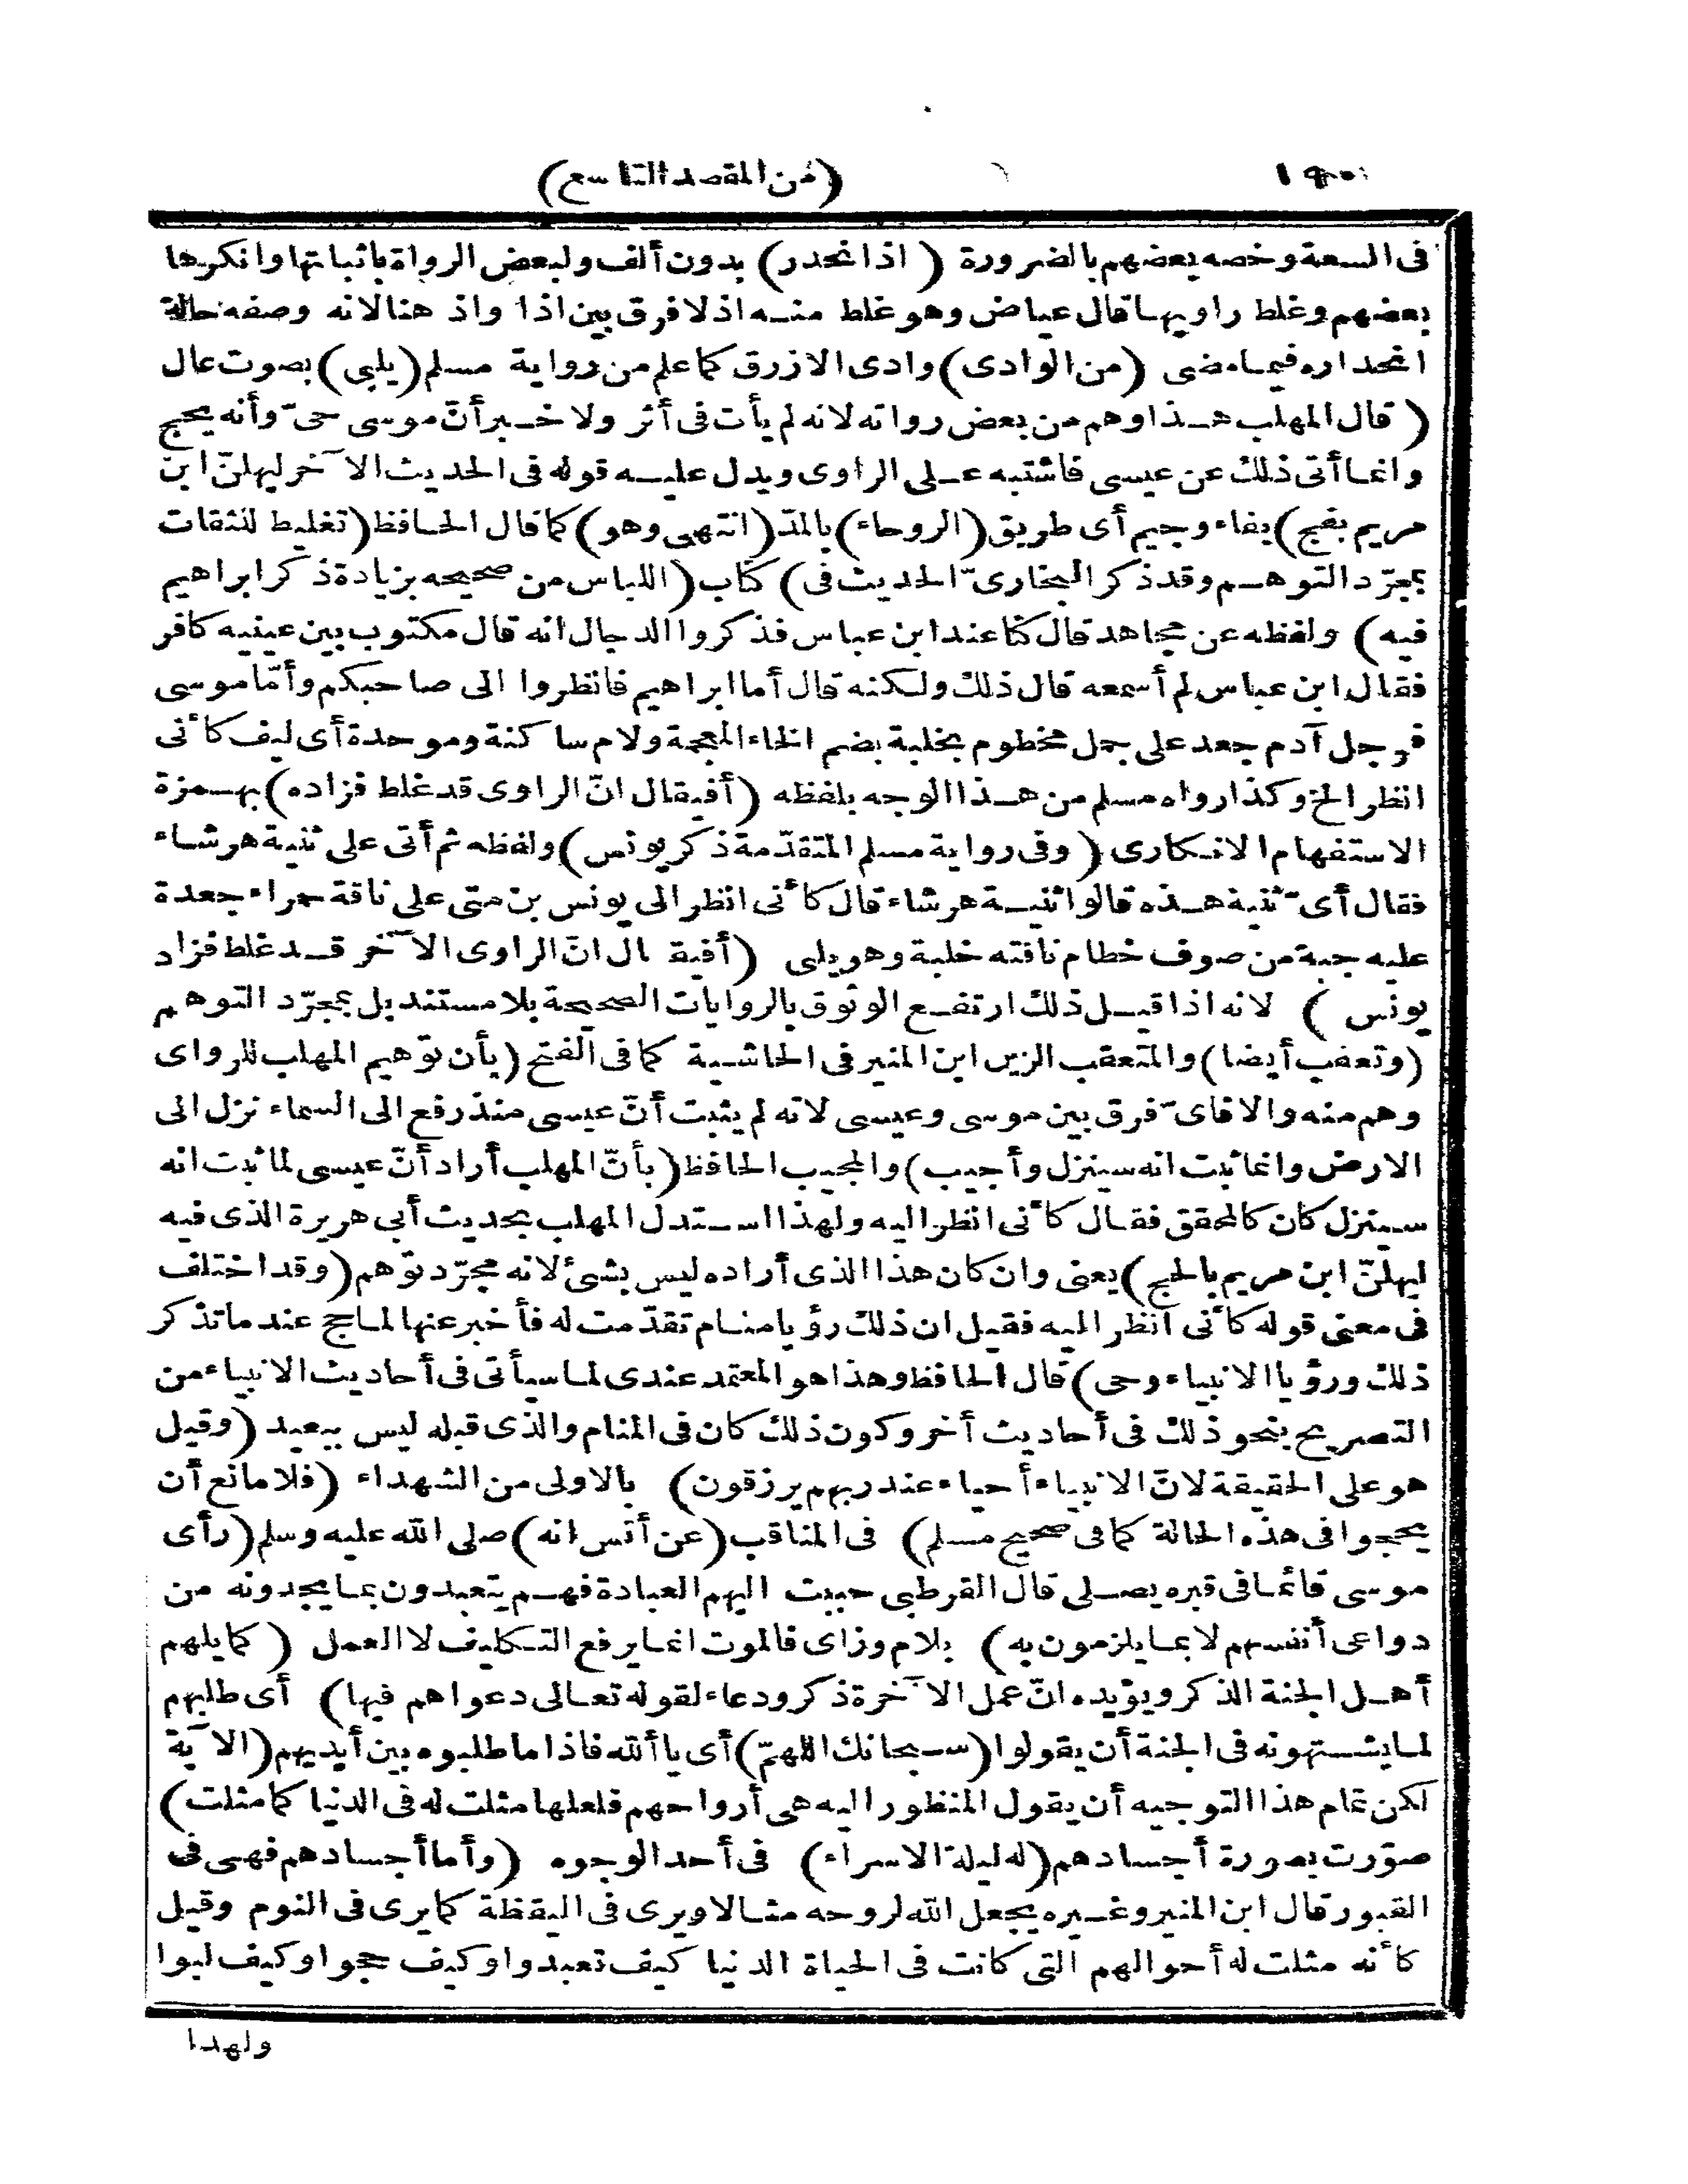 (من المقصد التاسع)
فى السعة وخصه بعضهم بالضرورة (اذ انحدر) بدون ألف ولبعض الرواة باثباتها وانكرها
بعضهم وغلط راويها قال عياض وهو غلط منه اذ لا فرق بين اذا واذ هنا لانه وصفه حالة
انحداره فيما مضى (من الوادى) وادى الازرق كما علم من رواية مسلم (يلبى) بصوت عال
(قال المهلب هذا وهم من بعض رواته لانه لم يأت فى أثر ولا خبر أنّ موسى حىّ وأنه يحج
وانما أتى ذلك عن عيسى فاشتبه على الراوى ويدل عليه قوله فى الحديث الآخر ليهلنّ ابن
مريم بفج) بفاء وجيم أى طريق (الروحاء) بالمدّ (انتهى وهو) كما قال الحافظ (تغليط للثقات
بمجرّد التوهم وقد ذكر البخارىّ الحديث فى) كتاب (اللباس من صحيحه بزيادة ذكر ابراهيم
فيه) ولفظه عن مجاهد قال كنا عند ابن عباس فذكروا الدجال انه قال مكتوب بين عينيه كافر
فقال ابن عباس لم أسمعه قال ذلك ولكنه قال أما ابراهيم فانظروا الى صاحبكم وأمّا موسى
فرجل آدم جعد على جمل مخطوم بخلبة بضم الخاء المعجمة ولام ساكنة وموحدة أى ليف كأنى
انظر الخ وكذا رواه مسلم من هذا الوجه بلفظه (أفيقال انّ الراوى قد غلط فزاده) بهمزة
الاستفهام الانكارى (وفى رواية مسلم المتقدّمة ذكر يونس) ولفظه ثم أتى على ثنية هرشاء
فقال أىّ ثنية هذه قالوا ثنية هرشاء قال كأنى انظر الى يونس بن متى على ناقة حمراء جعدة
عليه جبة من صوف خطام ناقته خلبة وهو يلبى (أفيقال انّ الراوى الآخر قد غلط فزاد
يونس) لانه اذا قيل ذلك ارتفع الوثوق بالروايات الصحيحة بلا مستند بل بمجرّد التوهم
(وتعقب أيضا) والمتعقب الزين ابن المنير فى الحاشية كما فى الفتح (بأن توهيم المهلب للرواى
وهم منه والا فاىّ فرق بين موسى وعيسى لانه لم يثبت أنّ عيسى منذ رفع الى السماء نزل الى
الارض وانما ثبت انه سينزل وأجيب) والمجيب الحافظ (بأنّ المهلب أراد أنّ عيسى لما ثبت انه
سينزل كان كالمحقق فقال كأنى انظر اليه ولهذا استدل المهلب بحديث أبى هريرة الذى فيه
ليهلنّ ابن مريم بالحج) يعنى وان كان هذا الذى أراده ليس بشئ لانه مجرّد توّهم (وقد اختلف
فى معنى قوله كأنى انظر اليه فقيل ان ذلك رؤيا منام تقدّمت له فأخبر عنها لما حج عند ما تذكر
ذلك ورؤيا الانبياء وحى) قال الحافظ وهذا هو المعتمد عندى لما سيأتى فى أحاديث الانبياء من
التصريح بنحو ذلك فى أحاديث أخر وكون ذلك كان فى المنام والذى قبله ليس ببعيد (وقيل
هو على الحقيقة لانّ الانبياء أحياء عند ربهم يرزقون) بالاولى من الشهداء (فلا مانع أن
يحجوا فى هذه الحالة كما فى صحيح مسلم) فى المناقب (عن أنس انه) صلى الله عليه وسلم (رأى
موسى قائما فى قبره يصلى قال القرطبى حببت اليهم العبادة فهم يتعبدون بما يجدونه من
دواعى أنفسهم لا بما يلزمون به) بلام وزاى فالموت انما يرفع التكليف لا العمل (كما يلهم
أهل الجنة الذكر ويؤيده انّ عمل الآخرة ذكر ودعاء لقوله تعالى دعواهم فيها) أى طلبهم
لما يشتهونه فى الجنة أن يقولوا (سبحانك اللهمّ) أى يا ألله فاذا ما طلبوه بين أيديهم (الآية
لكن تمام هذا التوجيه أن يقول المنظور اليه هى أرواحهم فلعلها مثلت له فى الدنيا كما مثلت)
صوّرت بصورة أجسادهم (له ليلة الاسراء) فى أحد الوجوه (وأما أجسادهم فهى فى
القبور قال ابن المنير وغيره يجعل الله لروحه مثالا ويرى فى اليقظة كما يرى فى النوم وقيل
كأنه مثلت له أحوالهم التى كانت فى الحياة الدنيا كيف تعبدوا وكيف حجوا وكيف لبوا
ولهذا